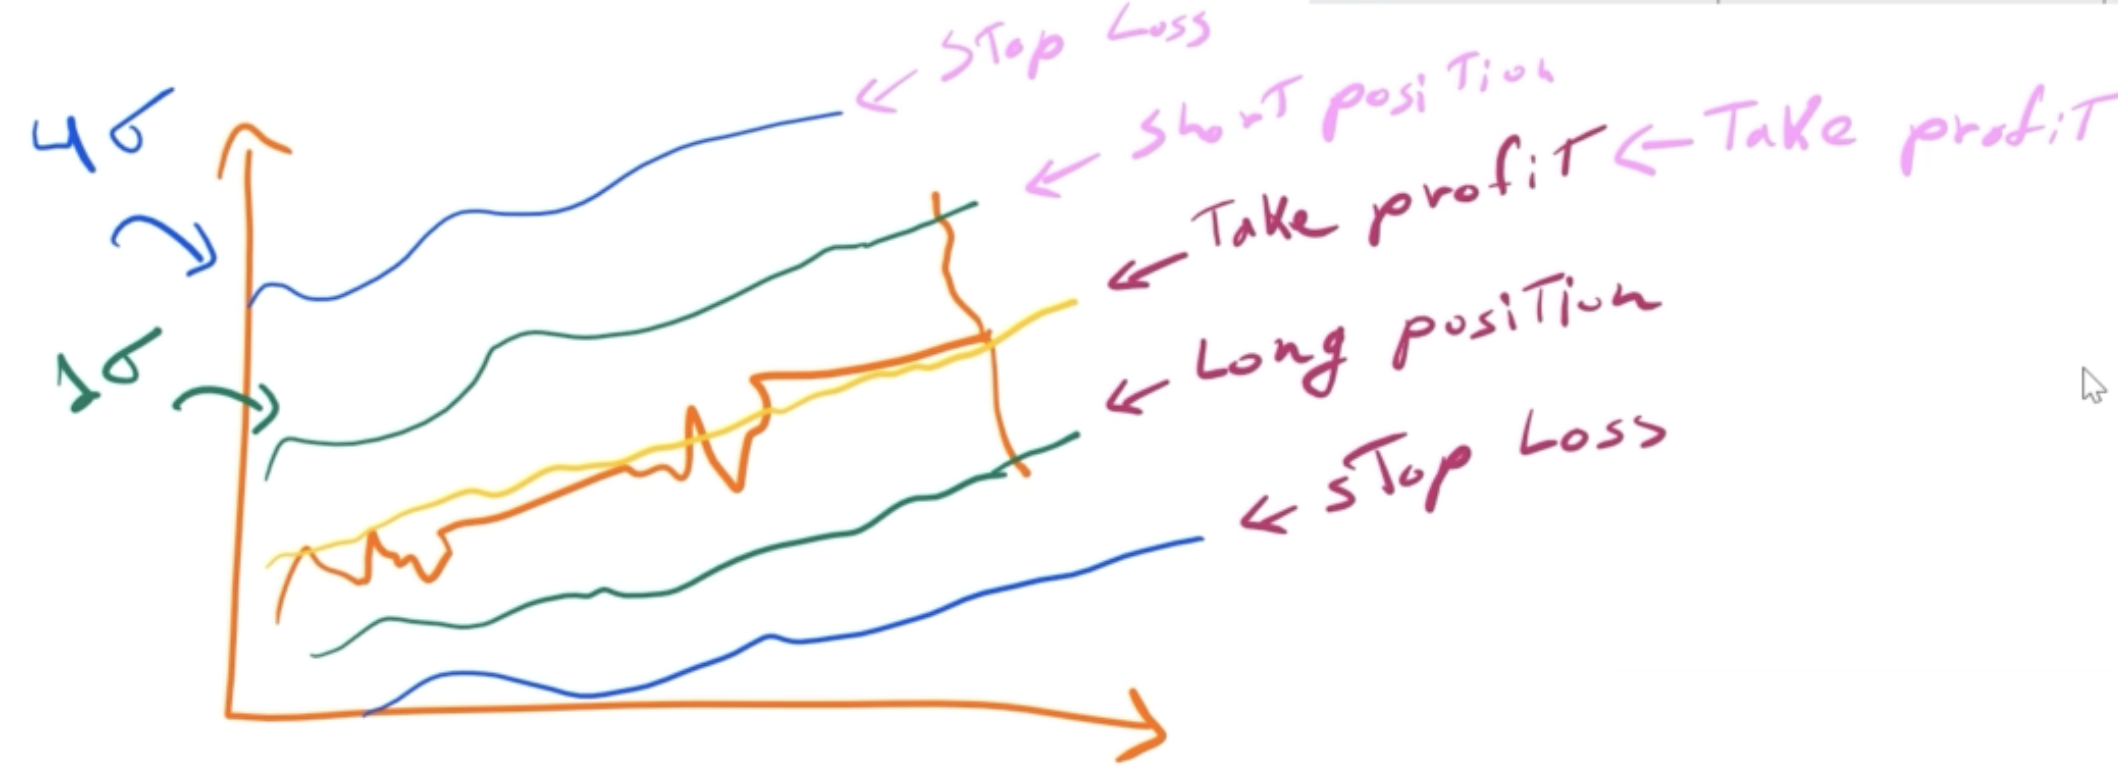 4σ
1σ
Stop Loss
Short position
Take profit
Take profit
Long position
sTop Loss